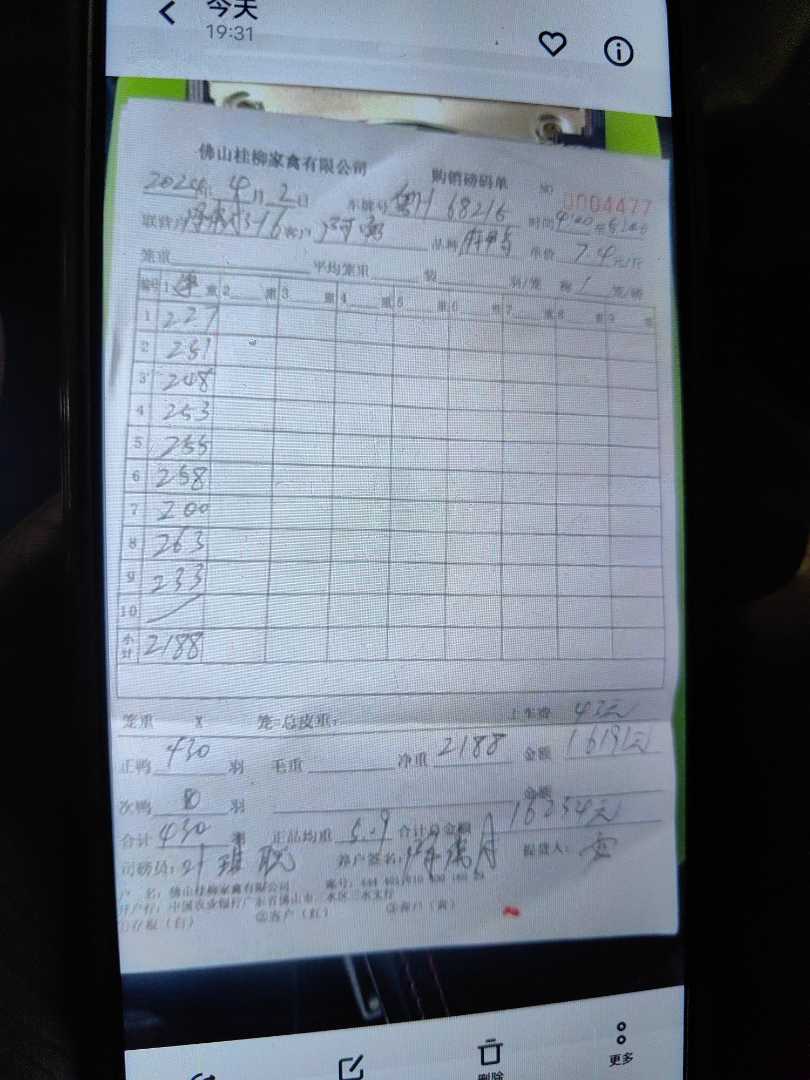 今天
19:31
佛山桂柳家禽有限公司 购销磅码单 NO 0004477
2024年 4月 2日 车牌号 68216 时间
联营户 客户 品种 单价 7.4 元/斤
笼重 平均笼重 装 羽/笼 称 1 笼/磅
编号 1 重 2 重 3 重 4 重 5 重 6 重 7 重 8 重 9 重
1 227
2 251
3 248
4 253
5 255
6 258
7 200
8 263
9 233
10
小计 2188
笼重 X 笼=总皮重: 上车费 43元
正鸭 430 羽 毛重 净重 2188 金额 16191元
次鸭 羽 金额
合计 430 羽 正品均重 5.09 合计总金额 16234元
司磅员: 养户签名: 提货人:
户 名: 佛山桂柳家禽有限公司 账号:
开户行: 中国农业银行广东省佛山市三水区三水支行
①存根(白) ②客户(红) ③养户(黄)
删除
更多